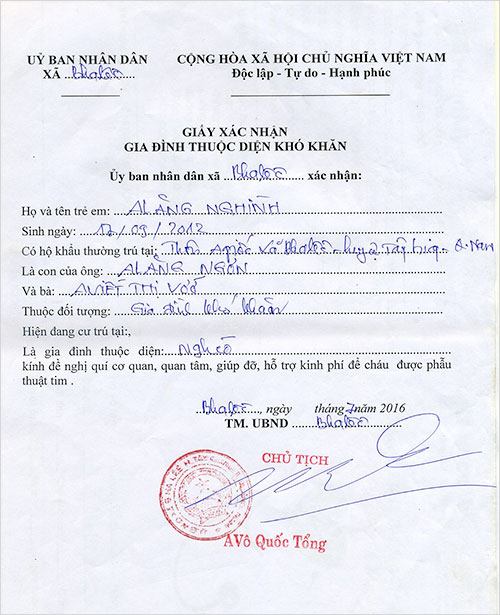 UỶ BAN NHÂN DÂN CỘNG HÒA XÃ HỘI CHỦ NGHĨA VIỆT NAM
XÃ Bhalêê Độc lập - Tự do - Hạnh phúc
GIẤY XÁC NHẬN
GIA ĐÌNH THUỘC DIỆN KHÓ KHĂN
Ủy ban nhân dân xã Bhalêê xác nhận:
Họ và tên trẻ em: ALĂNG NGHĨNH
Sinh ngày: /09/2012
Có hộ khẩu thường trú tại: Thôn xã Bhalêê - huyện Tây Giang - Q. Nam
Là con của ông: ALĂNG NGÓN
Và bà: THỊ
Thuộc đối tượng: Gia đình khó khăn
Hiện đang cư trú tại:,
Là gia đình thuộc diện: Nghèo
kính đề nghị quí cơ quan, quan tâm, giúp đỡ, hỗ trợ kinh phí để cháu được phẫu
thuật tim .
Bhalêê, ngày tháng 7 năm 2016
TM. UBND Bhalêê
CHỦ TỊCH
AVô Quốc Tổng